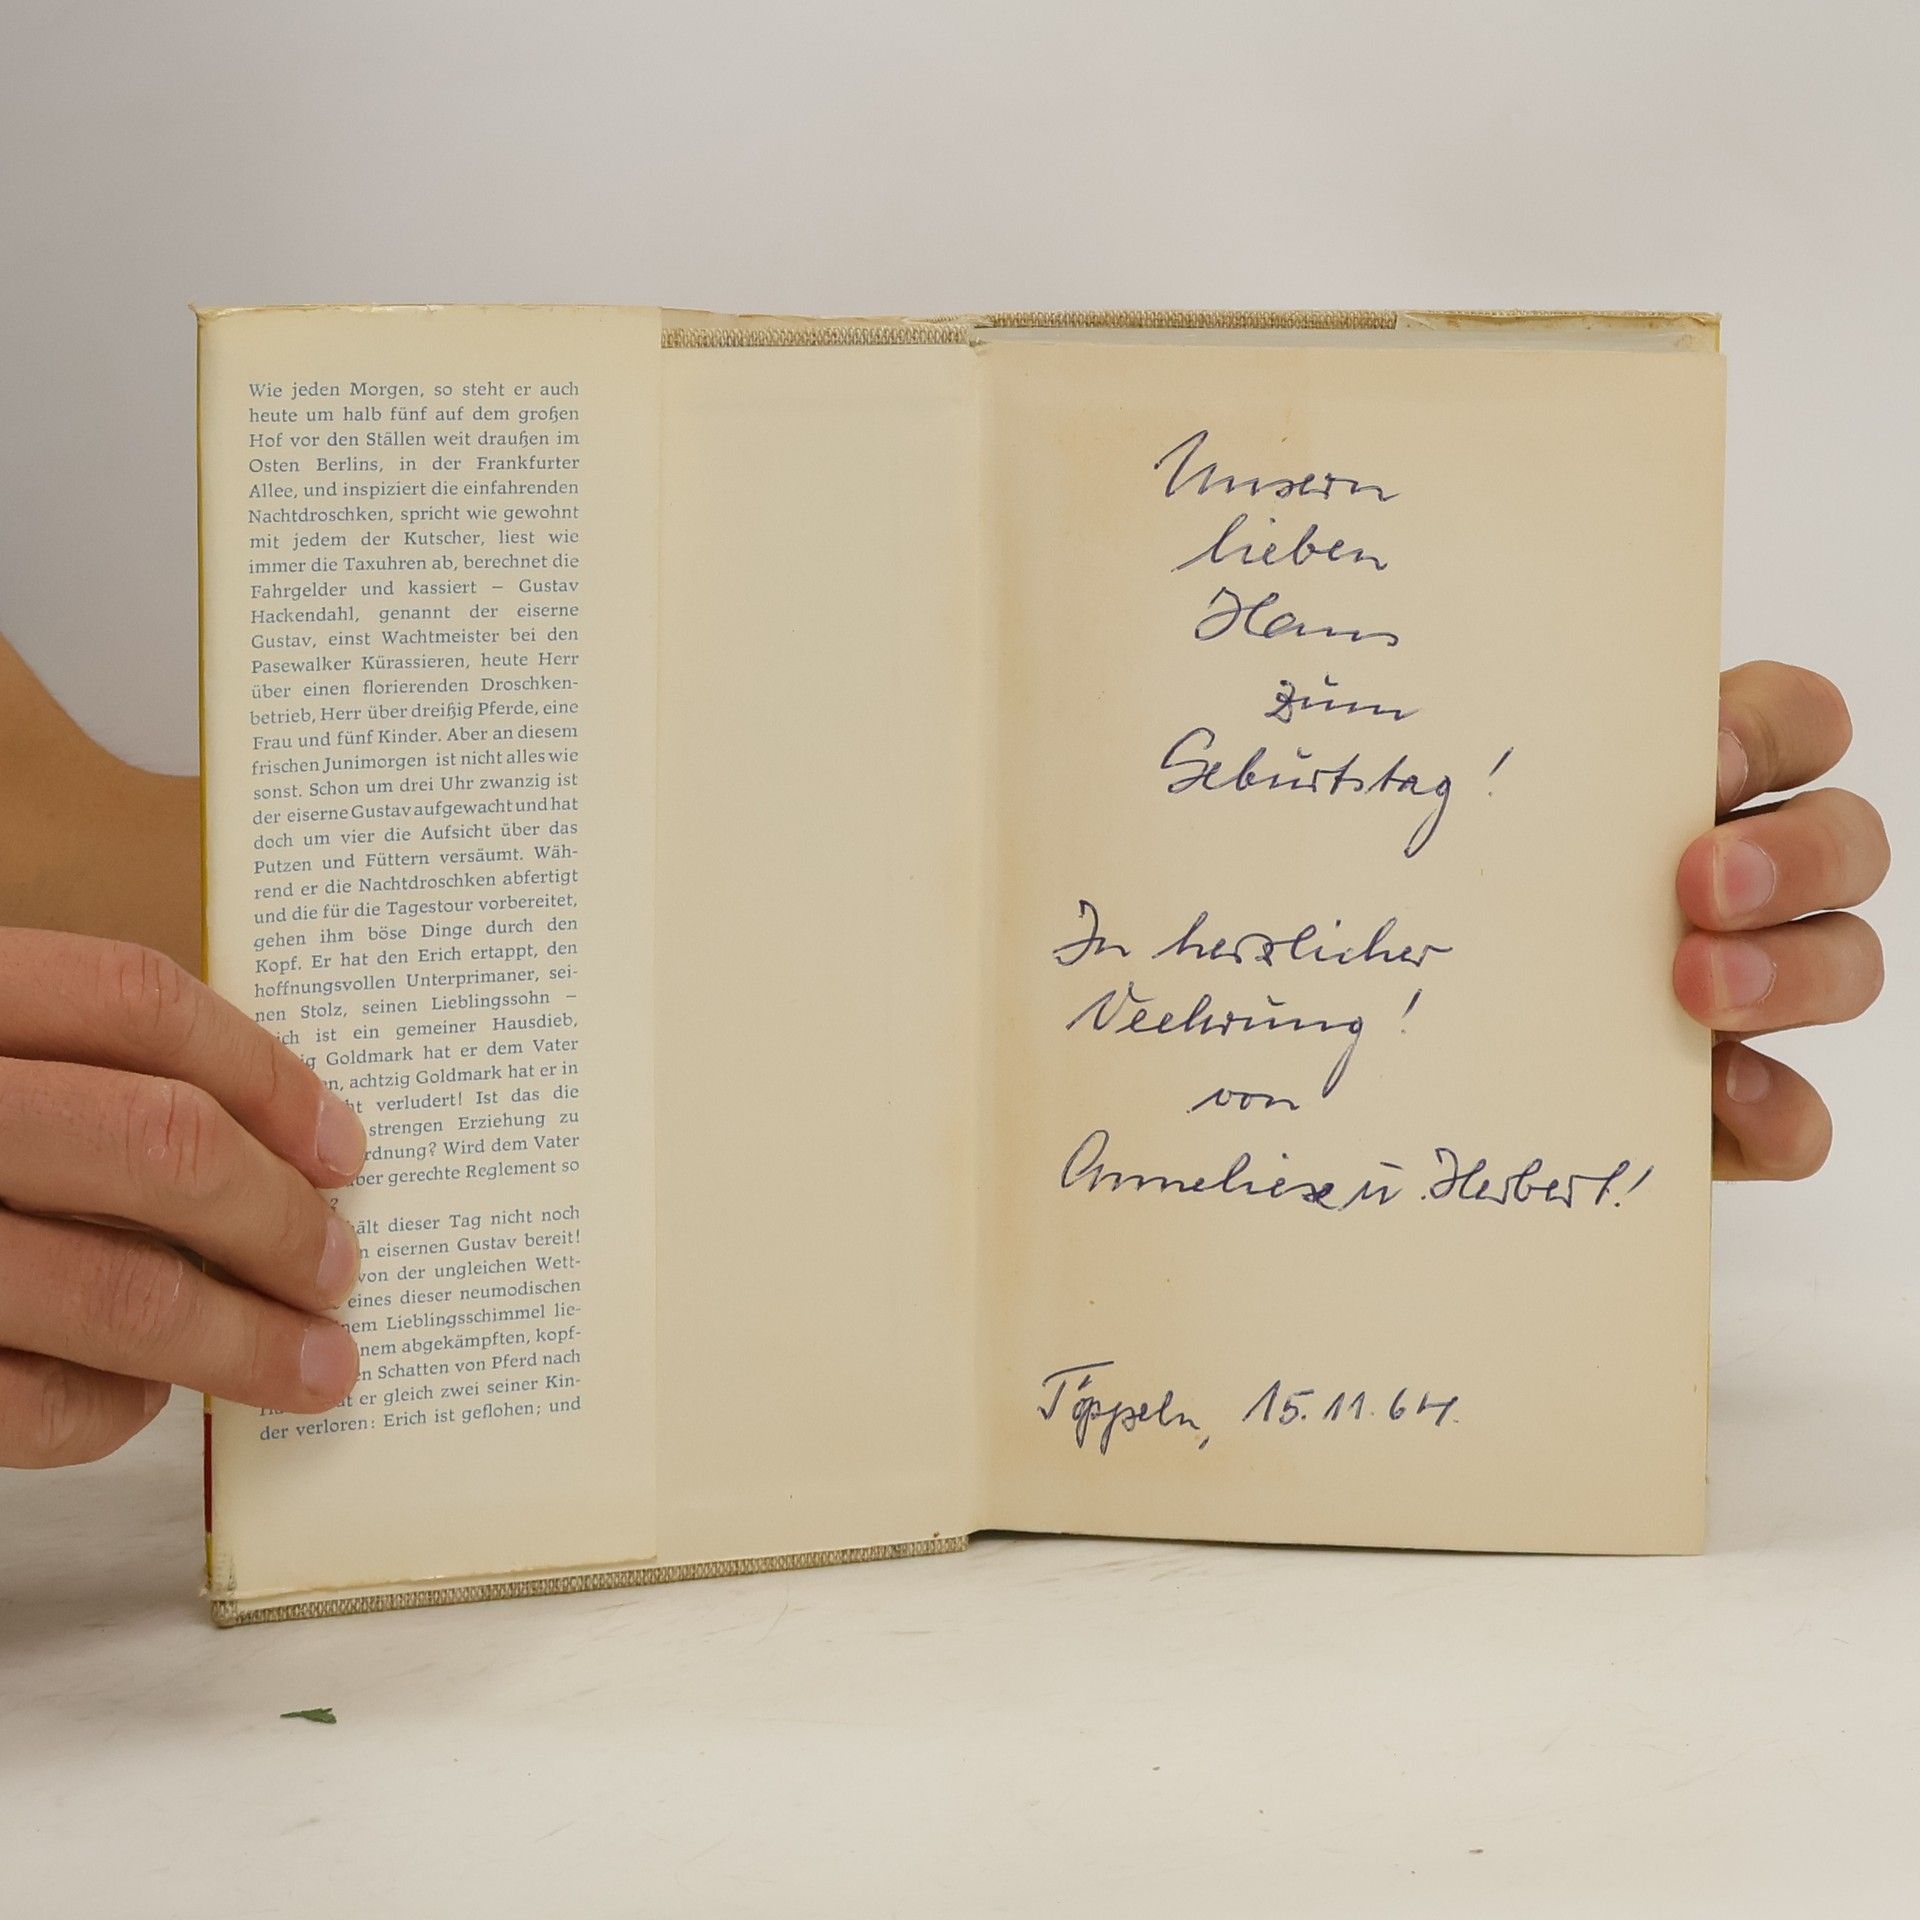 Wie jeden Morgen, so steht er auch
heute um halb fünf auf dem großen
Hof vor den Ställen weit draußen im
Osten Berlins, in der Frankfurter
Allee, und inspiziert die einfahrenden
Nachtdroschken, spricht wie gewohnt
mit jedem der Kutscher, liest wie
immer die Taxuhren ab, berechnet die
Fahrgelder und kassiert – Gustav
Hackendahl, genannt der eiserne
Gustav, einst Wachtmeister bei den
Pasewalker Kürassieren, heute Herr
über einen florierenden Droschken-
betrieb, Herr über dreißig Pferde, eine
Frau und fünf Kinder. Aber an diesem
frischen Junimorgen ist nicht alles wie
sonst. Schon um drei Uhr zwanzig ist
der eiserne Gustav aufgewacht und hat
doch um vier die Aufsicht über das
Putzen und Füttern versäumt. Wäh-
rend er die Nachtdroschken abfertigt
und die für die Tagestour vorbereitet,
gehen ihm böse Dinge durch den
Kopf. Er hat den Erich ertappt, den
hoffnungsvollen Unterprimaner, sei-
nen Stolz, seinen Lieblingssohn –
ist ein gemeiner Hausdieb,
Goldmark hat er dem Vater
achtzig Goldmark hat er in
verludert! Ist das die
strengen Erziehung zu
Wird dem Vater
gerechte Reglement so
?
hält dieser Tag nicht noch
eisernen Gustav bereit!
von der ungleichen Wett-
eines dieser neumodischen
Lieblingsschimmel lie-
abgekämpften, kopf-
Schatten von Pferd nach
er gleich zwei seiner Kin-
der verloren: Erich ist geflohen; und
Unsern
lieben
Hans
zum
Geburtstag!
In herzlicher
Verehrung!
von
Anneliese u. Herbert!
Töppeln, 15.11.64.